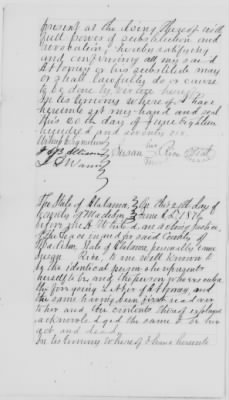 present at the doing thereof with
full power of substitution and
revocation, hereby ratifying
and confirming all my said
Attorney or his substitute may
or shall lawfully do or cause
to be done by virtue hereof
In testimony whereof I have
hereunto set my hand and seal
this 20th day of June Eighteen
hundred and seventy six.
his
Susan Rice Seal
The State of Alabama On this 20th day of
County of Madison June A.D. 1876
before me A. White an acting Justice
of the Peace in and for said County of
Madison State of Alabama personally came
Susan Rice, to me well known to
be the identical person she represents
herself to be and the person who executed
the foregoing Letter of Attorney, and
the same having been first read over
to her and the contents thereof explained
acknowledged the same to be her
act, and deed.
In testimony whereof I have hereunto